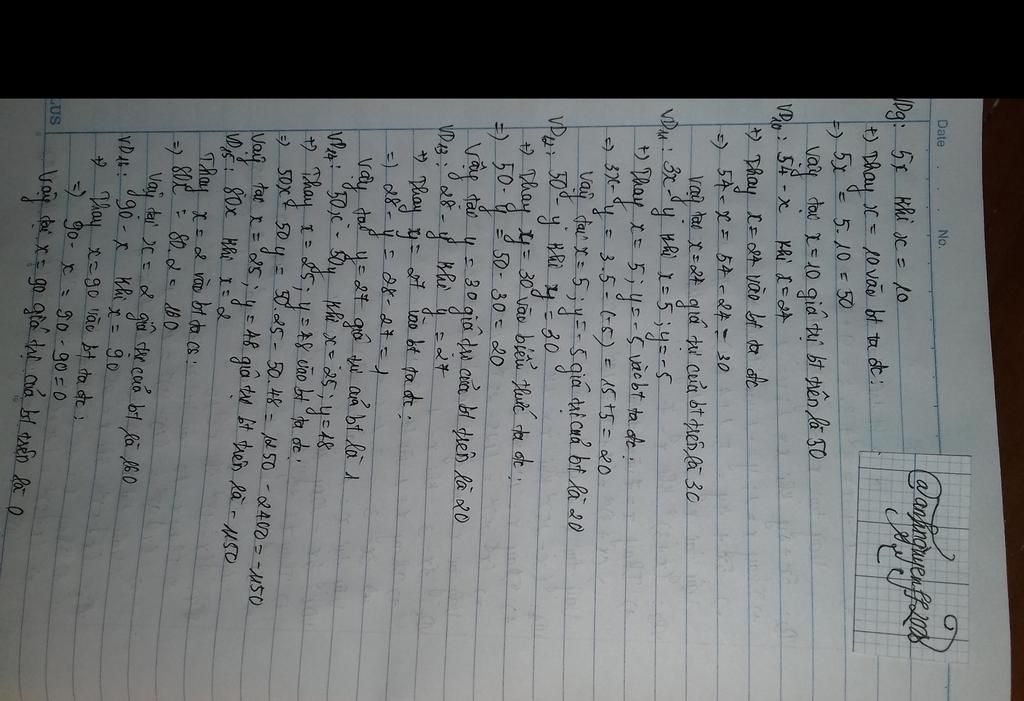 Date No.
@anhtonuyenff2008
VD9: 5x khi x = 10
+) Thay x = 10 vào bt ta đc:
=) 5x = 5.10 = 50
Vậy tại x = 10 giá trị bt trên là 50
VD10: 54 - x khi x = 24
+) Thay x = 24 vào bt ta đc
=) 54 - x = 54 - 24 = 30
Vậy tại x = 24 giá trị của bt trên là 30
VD11: 3x - y khi x = 5; y = -5
+) Thay x = 5; y = -5 vào bt ta đc:
=) 3x - y = 3.5 - (-5) = 15 + 5 = 20
Vậy tại x = 5; y = -5 giá trị của bt là 20
VD12: 50 - y khi y = 30
+) Thay y = 30 vào biểu thức ta đc:
=) 50 - y = 50 - 30 = 20
Vậy tại y = 30 giá trị của bt trên là 20
VD13: 28 - y khi y = 27
+) Thay y = 27 vào bt ta đc:
=) 28 - y = 28 - 27 = 1
Vậy tại y = 27 giá trị của bt là 1
VD14: 50x - 50y khi x = 25; y = 48
+) Thay x = 25; y = 48 vào bt ta đc:
=) 50x - 50y = 50.25 - 50.48 = 1250 - 2400 = -1150
Vậy tại x = 25; y = 48 giá trị bt trên là -1150
VD15: 80x khi x = 2
Thay x = 2 vào bt ta có:
=) 80x = 80.2 = 160
Vậy tại x = 2 giá trị của bt là 160
VD16: 90 - x khi x = 90
+) Thay x = 90 vào bt ta đc:
=) 90 - x = 90 - 90 = 0
Vậy tại x = 90 giá trị của bt trên là 0